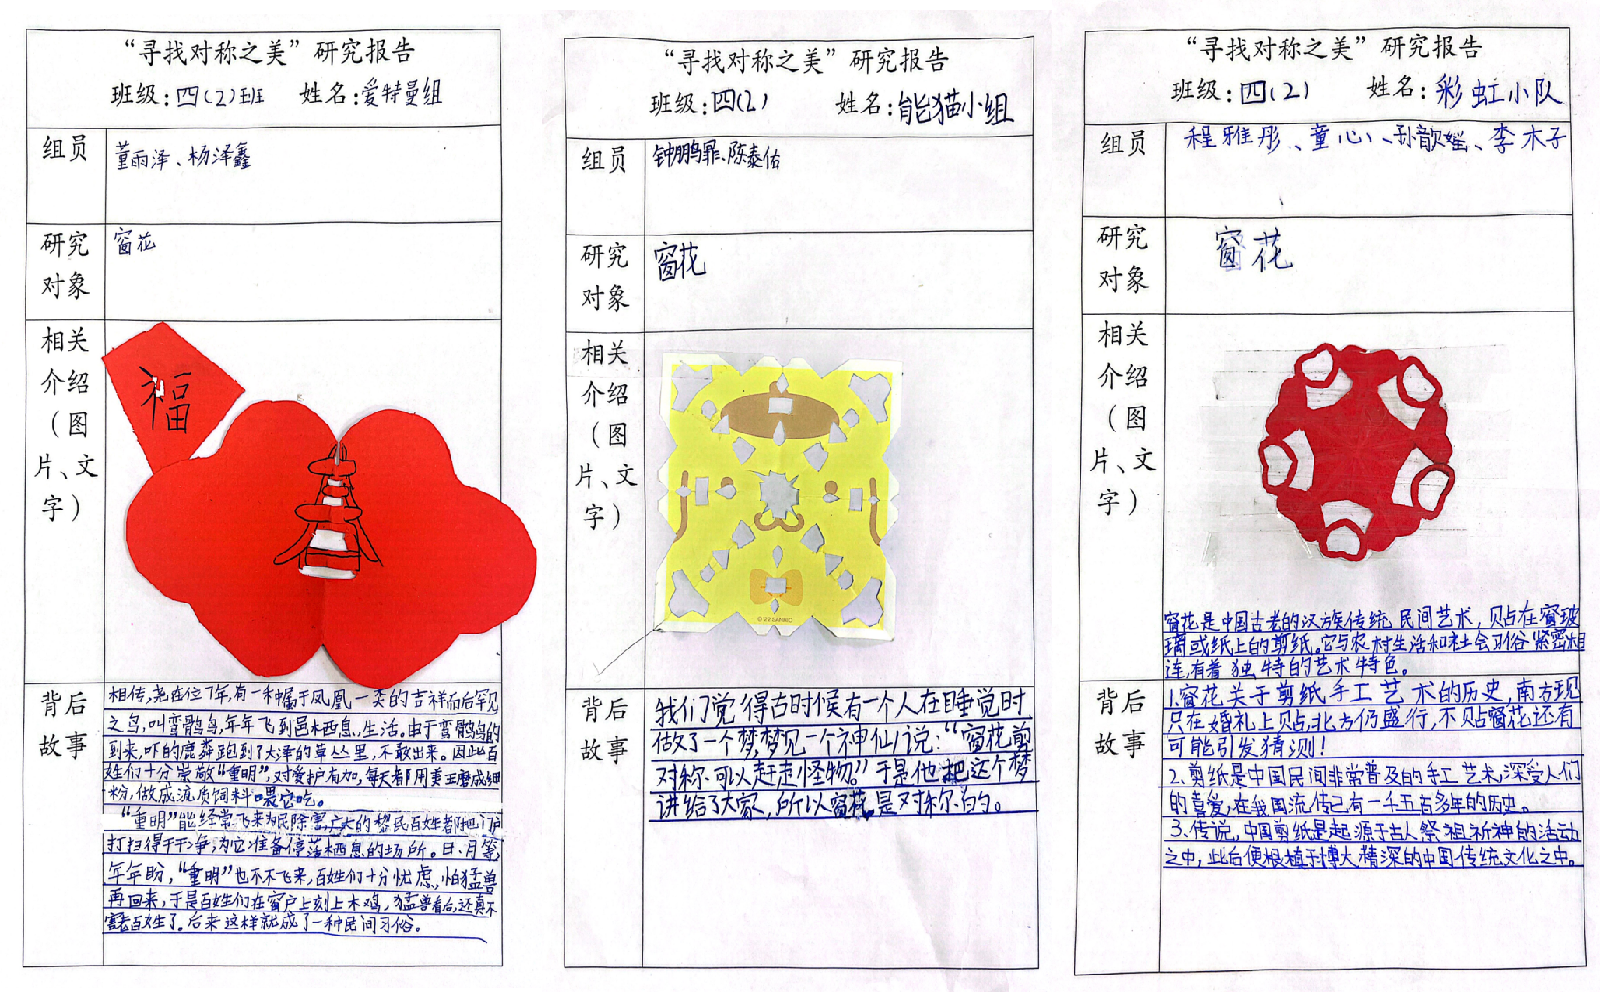 “寻找对称之美”研究报告
班级:四(2)班 姓名:爱特曼组
组员
董雨泽、杨泽鑫
研究
对象
窗花
相关
介绍
(图
片、文
字)
福
背后
故事
相传,尧在位7年,有一种属于凤凰一类的吉祥而后罕见
之鸟,叫鸾鹊鸟,年年飞到邑栖息、生活。由于鸾鹊鸟的
到来,吓的鹿莽跑到了大泽的草丛里,不敢出来。因此百
姓们十分崇敬“重明”,对爱护有加,每天都用美玉磨成细
粉,做成流质饲料喂它吃。
“重明”能经常飞来为民除害,广大的黎民百姓者都把门户
打扫得干干净,为它准备停落栖息的场所。日、月等,
年年盼,“重明”也不不飞来,百姓们十分忧虑,怕猛兽
再回来,于是百姓们在窗户上刻上木鸡,猛兽看后,还真不
害百姓了。后来这样就成了一种民间习俗。
“寻找对称之美”研究报告
班级:四(2) 姓名:能猫小组
组员
钟鹏 、陈泰佑
研究
对象
窗花
相关
介绍
(图
片、文
字)
背后
故事
我们觉得古时候有一个人在睡觉时
做了一个梦,梦见一个神仙说:“窗花剪
对称可以赶走怪物。”于是他把这个梦
讲给了大家,所以窗花是对称的。
“寻找对称之美”研究报告
班级:四(2) 姓名:彩虹小队
组员
程雅彤、童心、孙歆瑶、李木子
研究
对象
窗花
相关
介绍
(图
片、文
字)
窗花是中国古老的汉族传统民间艺术,贴在窗玻
璃或纸上的剪纸。它与农村生活和社会习俗紧密相
连,有着独特的艺术特色。
背后
故事
1.窗花关于剪纸手工艺术的历史,南方现
只在婚礼上贴,北方仍盛行,不贴窗花还有
可能引发猜测!
2.剪纸是中国民间非常普及的手工艺术,深受人们
的喜爱,在我国流传已有一千五百多年的历史。
3.传说,中国剪纸是起源于古人祭祖祈神的活动
之中,此后便根植于博大精深的中国传统文化之中。